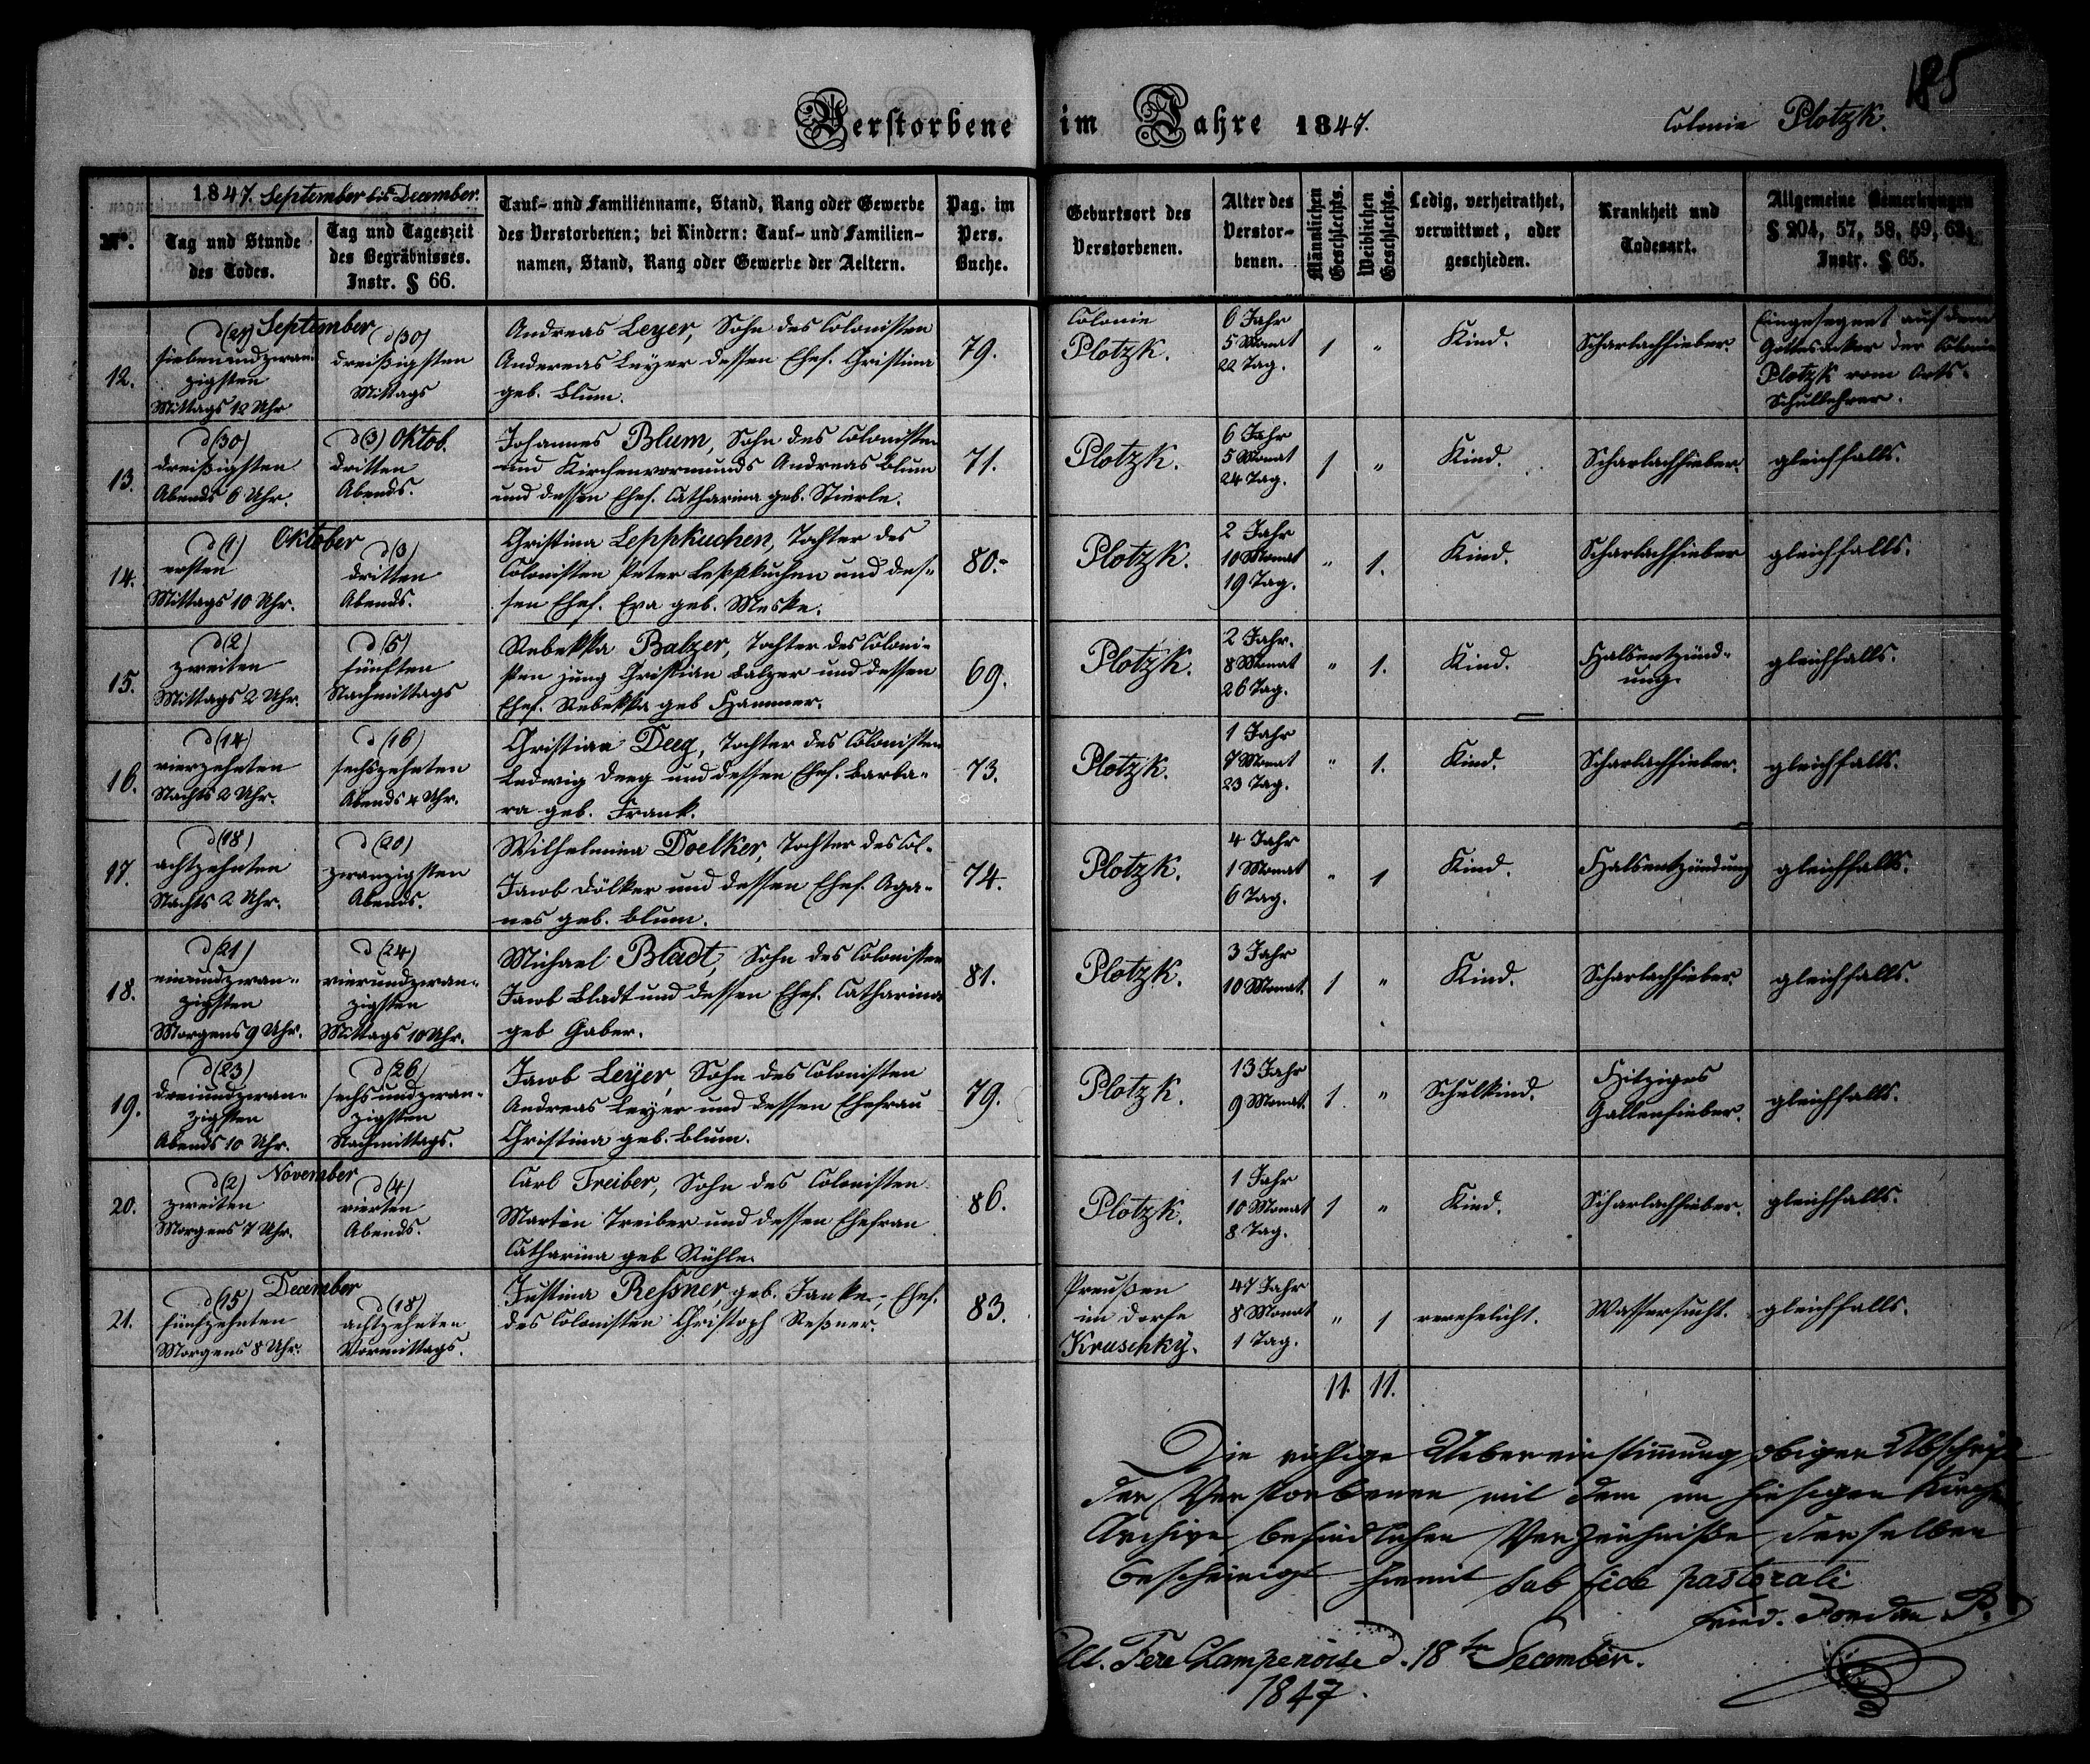 185
Verstorbene im Jahre 1847.
Colonie Plotzk.
No.
1847. September bis December.
Tag und Stunde
des Todes.
Tag und Tageszeit
des Begräbnisses.
Instr. § 66.
Tauf- und Familienname, Stand, Rang oder Gewerbe
des Verstorbenen; bei Kindern: Tauf- und Familien-
namen, Stand, Rang oder Gewerbe der Aeltern.
Pag. im
Pers.
Buche.
Geburtsort des
Verstorbenen.
Alter des
Verstor-
benen.
Männlichen
Geschlechts.
Weiblichen
Geschlechts.
Ledig, verheirathet,
verwittwet, oder
geschieden.
Krankheit und
Todesart.
Allgemeine Bemerkungen
§ 204, 57, 58, 59, 63,
Instr. § 65.
12.
September
d (27)
siebenundzwan-
zigsten
Mittags 12 Uhr
d (30)
dreißigsten
Mittags
Andreas Leyer, Sohn des Colonisten
Andereas Leyer dessen Ehef. Christina
geb. Blum.
79.
Colonie
Plotzk.
6 Jahr
5 Monat
22 Tag.
1 "
Kind.
Scharlachfieber.
Eingesegnet auf dem
Gottesacker der Colonie
Plotzk vom Orts-
Schullehrer.
13.
d (30)
dreißigsten
Abends 6 Uhr.
d (3) Oktob.
dritten
Abends.
Johannes Blum, Sohn des Colonisten
und Kirchenvormunds Andreas Blum
und dessen Ehef. Catharina geb. Stierle.
71.
Plotzk.
6 Jahr
5 Monat
24 Tag.
1 "
Kind.
Scharlachfieber.
gleichfalls.
14.
Oktober
d (1)
ersten
Mittags 10 Uhr.
d (3)
dritten
Abends.
Christina Leppkuchen, Tochter des
Colonisten Peter Leppkuchen und des-
sen Ehef. Eva geb. Meske.
80.
Plotzk.
2 Jahr
10 Monat
19 Tag.
" 1.
Kind.
Scharlachfieber
gleichfalls.
15.
d (2)
zweiten
Mittags 2 Uhr.
d (5)
fünften
Nachmittags
Rebekka Balzer, Tochter des Coloni-
sten jung Christian Balzer und dessen
Ehef. Rebekka geb Hammer.
69.
Plotzk.
2 Jahr.
8 Monat
26 Tag.
" 1.
Kind.
Halsentzünd-
ung.
gleichfalls.
16.
d (14)
vierzehnten
Nachts 2 Uhr.
d (16)
sechszehnten
Abends 4 Uhr.
Christian Deeg, Tochter des Colonisten
Ludwig Deeg und dessen Ehef. Barba-
ra geb. Frank.
73.
Plotzk.
1 Jahr
7 Monat
23 Tag.
" 1.
Kind.
Scharlachfieber.
gleichfalls.
17.
d (18)
achtzehnten
Nachts 2 Uhr.
d (20)
zwanzigsten
Abends.
Wilhelmina Doelker, Tochter des Col.
Jacob Dölker und dessen Ehef. Aga-
nes geb. Blum.
74.
Plotzk.
4 Jahr
1 Monat
6 Tag.
" 1
Kind.
Halsentzündung
gleichfalls.
18.
d (21)
einundzwan-
zigsten
Morgens 9 Uhr.
d (24)
vierundzwan-
zigsten
Mittags 10 Uhr.
Michael Bladt, Sohn des Colonisten
Jacob Bladt und dessen Ehef. Catharina
geb Gaber.
81.
Plotzk.
3 Jahr
10 Monat.
1 "
Kind.
Scharlachfieber.
gleichfalls.
19.
d (23)
dreiundzwan-
zigsten
Abends 10 Uhr.
d (26)
sechsundzwan-
zigsten
Nachmittags.
Jacob Leyer, Sohn des Colonisten
Andreas Leyer und dessen Ehefrau
Christina geb. Blum.
79.
Plotzk.
13 Jahr
9 Monat.
1 "
Schulkind.
Hitziges
Gallenfieber.
gleichfalls.
20.
November
d (2)
zweiten
Morgens 7 Uhr.
d (4)
vierten
Abends.
Carl Treiber, Sohn des Colonisten
Martin Treiber und dessen Ehefrau
Catharina geb Rühle.
86.
Plotzk.
1 Jahr
10 Monat
8 Tag.
1 "
Kind.
Scharlachfieber.
gleichfalls.
21.
December
d (15)
fünfzehnten
Morgens 8 Uhr.
d (18)
achtzehnten
Vormittags.
Justina Reßner geb. Janke, Ehef.
des Colonisten Christoph Reßner.
83.
Preußen
im Dorfe
Kruschky.
47 Jahr
8 Monat
1 Tag.
" 1
verehelicht.
Wassersucht.
gleichfalls.
11. 11.
Die völlige Uebereinstimung obiger Abschrift
der Verstorbenen mit dem im hiesigen Kirchen
Archive befindlichen Verzeichniße derselben
bescheinigt hiemit sub fide pastorali
Fried. Jordan P.
Alt. Fere Champenoise d. 18ten December.
1847.